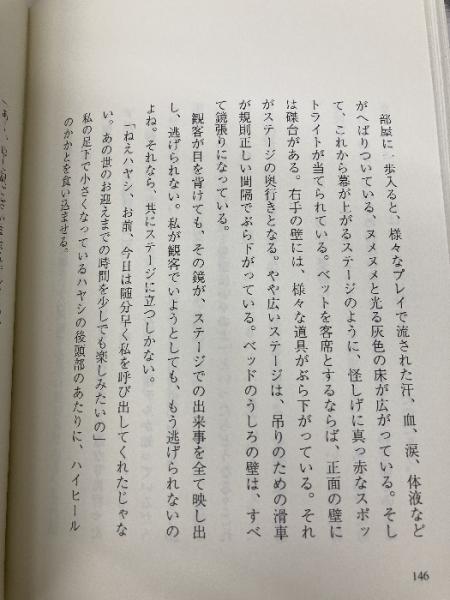 部屋に一歩入ると、様々なプレイで流された汗、血、涙、体液など
がへばりついている、ヌメヌメと光る灰色の床が広がっている。そし
て、これから幕が上がるステージのように、怪しげに真っ赤なスポッ
トライトが当てられている。ベットを客席とするならば、正面の壁に
は磔台がある。右手の壁には、様々な道具がぶら下がっている。それ
がステージの奥行きとなる。やや広いステージは、吊りのための滑車
が規則正しい間隔でぶら下がっている。ベッドのうしろの壁は、すべ
て鏡張りになっている。
観客が目を背けても、その鏡が、ステージでの出来事を全て映し出
し、逃げられない。私が観客でいようとしても、もう逃げられないの
よね。それなら、共にステージに立つしかない。
「ねえハヤシ、お前、今日は随分早く私を呼び出してくれたじゃな
い。あの世のお迎えまでの時間を少しでも楽しみたいの」
私の足下で小さくなっているハヤシの後頭部のあたりに、ハイヒール
のかかとを食い込ませる。
146